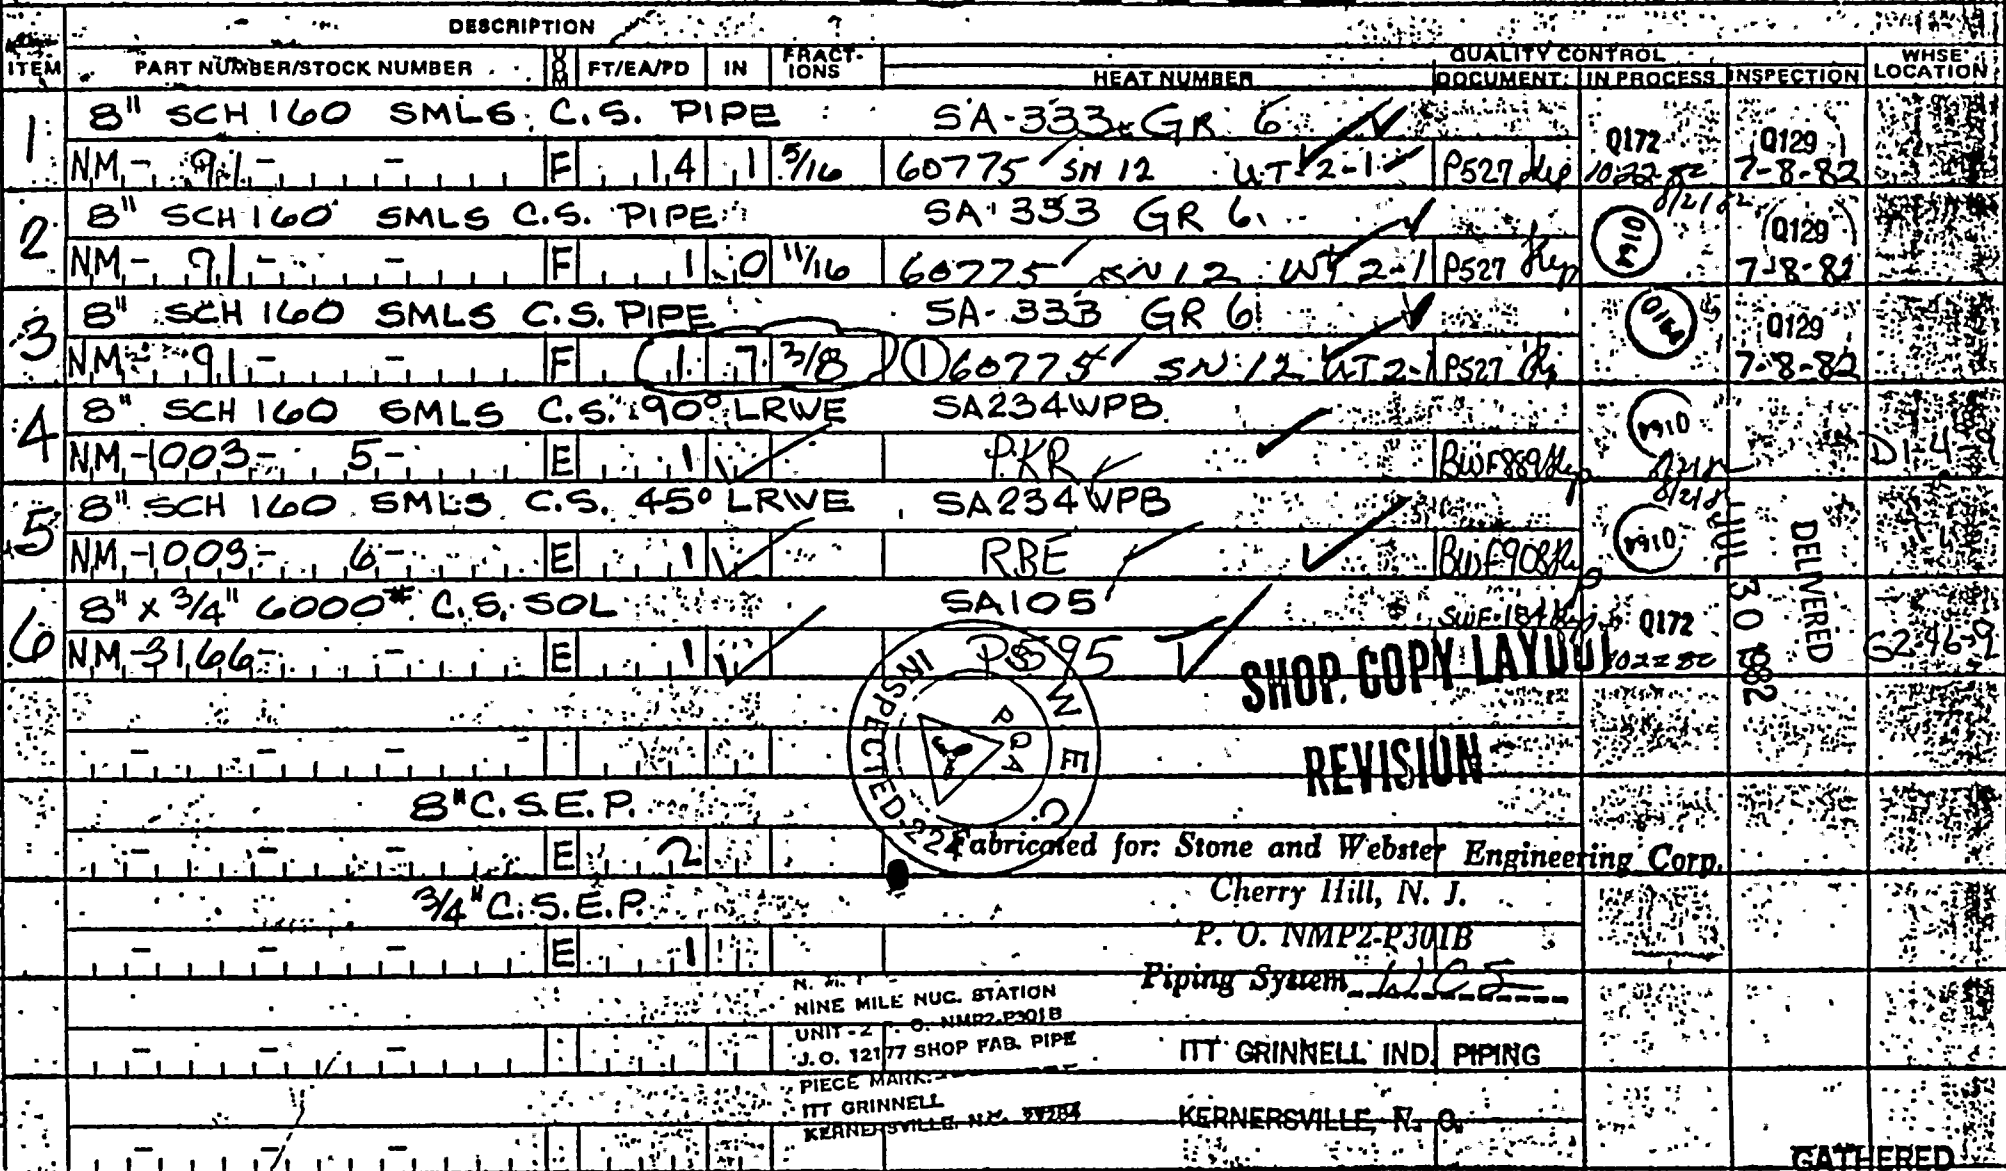 DESCRIPTION
ITEM PART NUMBER/STOCK NUMBER UOM FT/EA/PD IN FRACT-IONS HEAT NUMBER QUALITY CONTROL DOCUMENT IN PROCESS INSPECTION WHSE LOCATION
1 8" SCH 160 SMLS C.S. PIPE SA-333 GR 6 Q172 Q129
NM- 91- - F 14 1 5/16 60775 SN 12 UT-2-1 P527 10-22-82 7-8-82
2 8" SCH 160 SMLS C.S. PIPE SA-333 GR 6 Q164 Q129
NM- 91- - F 1 0 11/16 60775 SN 12 UT 2-1 P527 7-8-82
3 8" SCH 160 SMLS C.S. PIPE SA-333 GR 6 Q164 Q129
NM- 91- - F 1 7 3/8 1 60775 SN 12 UT 2-1 P527 7-8-82
4 8" SCH 160 SMLS C.S. 90° LRWE SA234WPB Q164
NM-1003- 5- E 1 PKR BWF889
5 8" SCH 160 SMLS C.S. 45° LRWE SA234WPB
NM-1003- 6- E 1 RBE BWF908 Q164
DELIVERED
JUL 30 1982
6 8" x 3/4" 6000# C.S. SOL SA105 SWF-184 Q172
NM-3166- E 1 PS595
SHOP COPY LAYOUT
REVISION
S W E C
PQA
INSPECTED
8" C.S.E.P.
- - - E 2
Fabricated for: Stone and Webster Engineering Corp.
3/4" C.S.E.P.
Cherry Hill, N. J.
- - - E 1
P. O. NMP2-P301B
Piping System
NINE MILE NUC. STATION
UNIT-2 P. O. NMP2-P301B
J.O. 12177 SHOP FAB. PIPE
PIECE MARK:
ITT GRINNELL
KERNERSVILLE, N.C. 27284
ITT GRINNELL IND. PIPING
KERNERSVILLE, N. C.
GATHERED